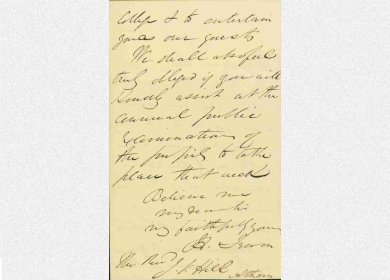 College & to entertain
you as our guests
We shall also feel
truly obliged if you will
kindly assist at the
annual public
Examination of
the pupils to take
place that week
Believe me
my dear Sir
very faithfully yours
B.
The Revd J. Hill
Athens